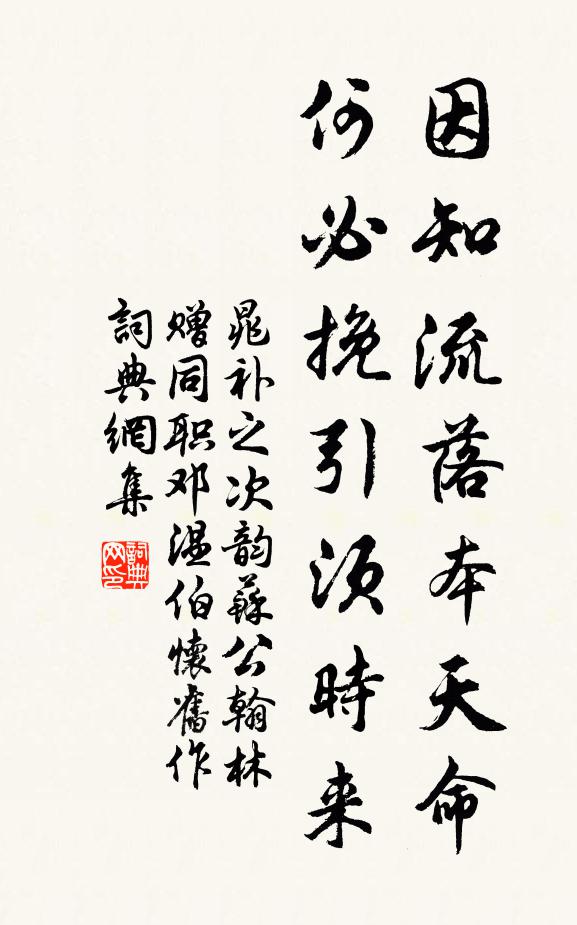 因知流落本天命
何必挽引须時来
晁补之次韵蘇公翰林
赠同职邓温伯懷舊作
詞典網集
詞典网印